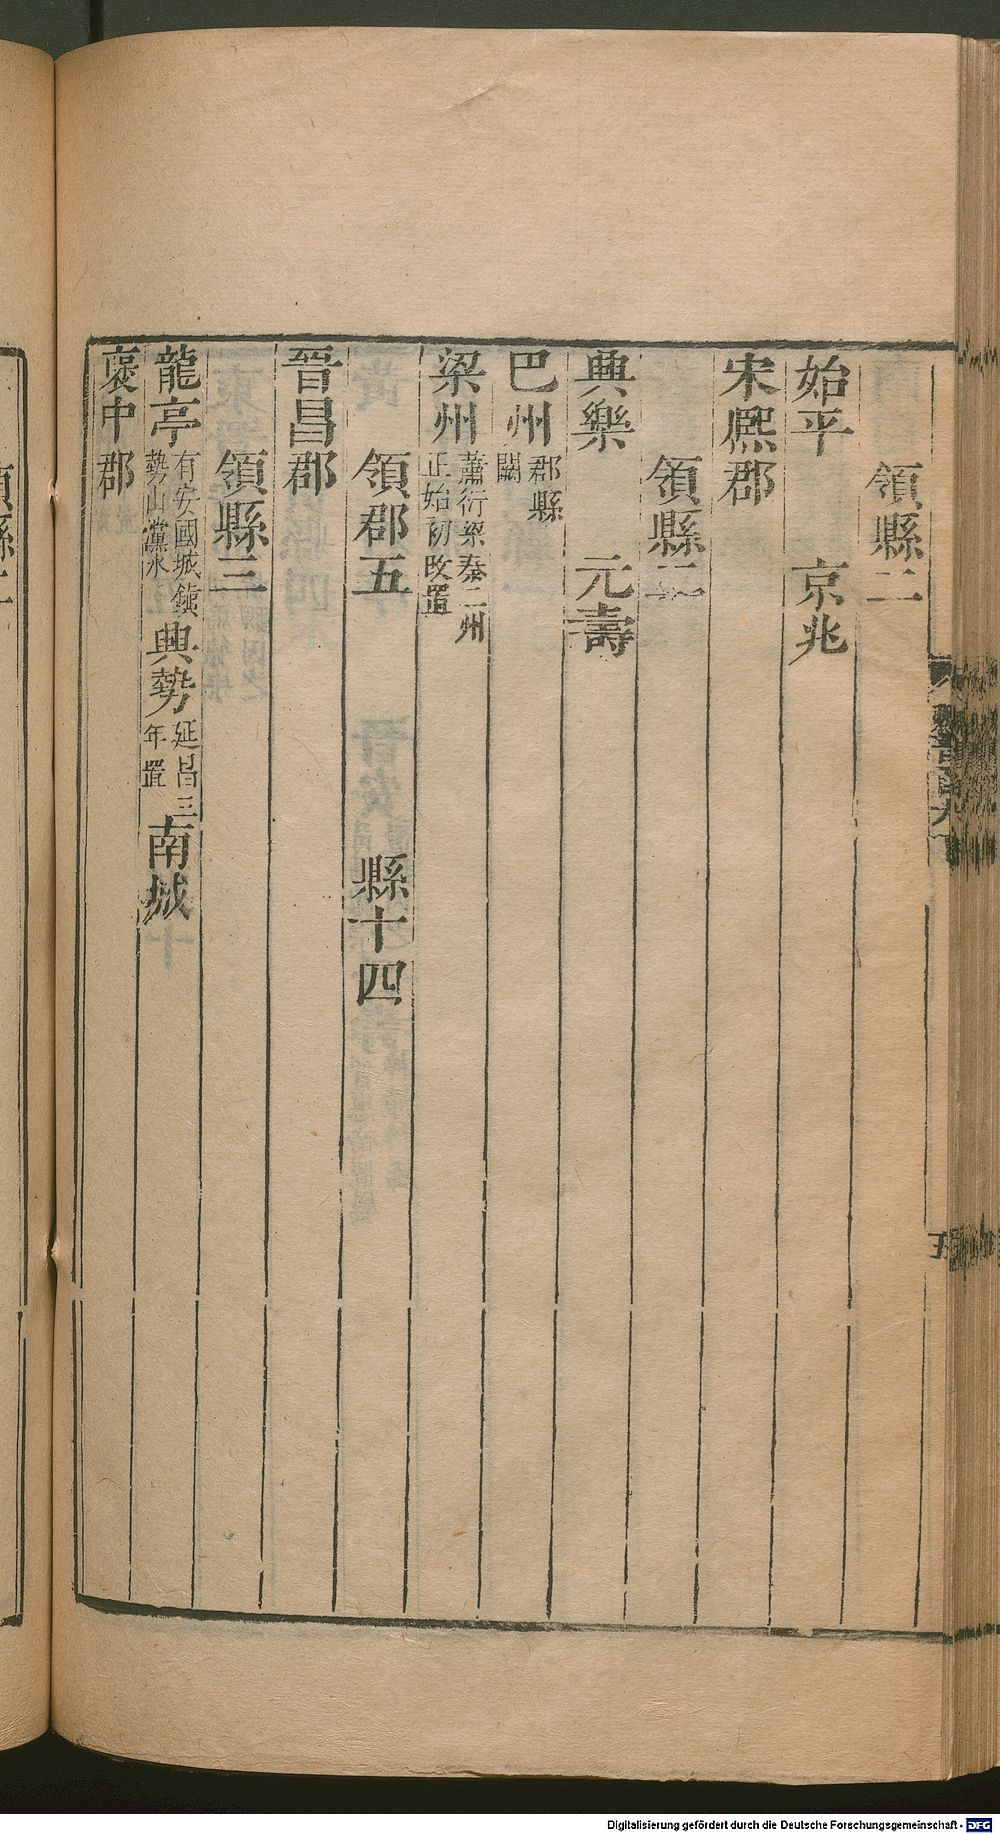 領縣二
始平 京兆
宋熈郡
領縣二
典樂 元壽
巴州 郡縣闕
梁州 蕭衍梁秦二州正始初改置
領郡五 縣十四
晉昌郡
領縣三
龍亭 有安國城鎮勢山灙水 興勢 延昌三年置 南城
襃中郡
Digitalisierung gefördert durch die Deutsche Forschungsgemeinschaft - DFG